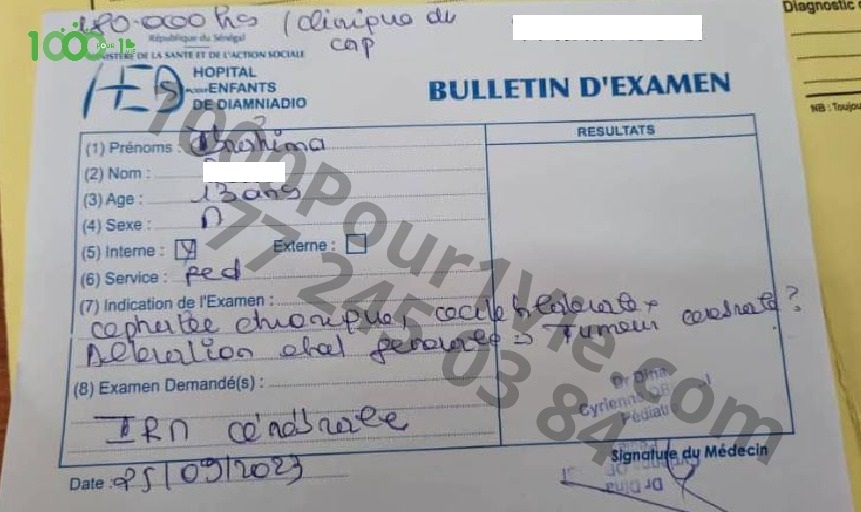 180.000 frs / clinique du
cap
1000 POUR 1 VIE
République du Sénégal
MINISTERE DE LA SANTE ET DE L'ACTION SOCIALE
HOPITAL
ENFANTS
DE DIAMNIADIO
BULLETIN D'EXAMEN
Diagnostic
NB : Toujou
RESULTATS
(1) Prénoms : Ibrahima
(2) Nom :
(3) Age : 13 ans
(4) Sexe : M
(5) Interne : Externe :
(6) Service : ped
(7) Indication de l'Examen :
cephalée chronique, cecité bilaterale +
Alteration etat generale => Tumeur cerebrale ?
(8) Examen Demandé(s) :
IRM cérébrale
Date : 25/09/2023
Dr Dina
Pédiatre
Signature du Médecin
1000Pour1Vie.com
77 245 03 84